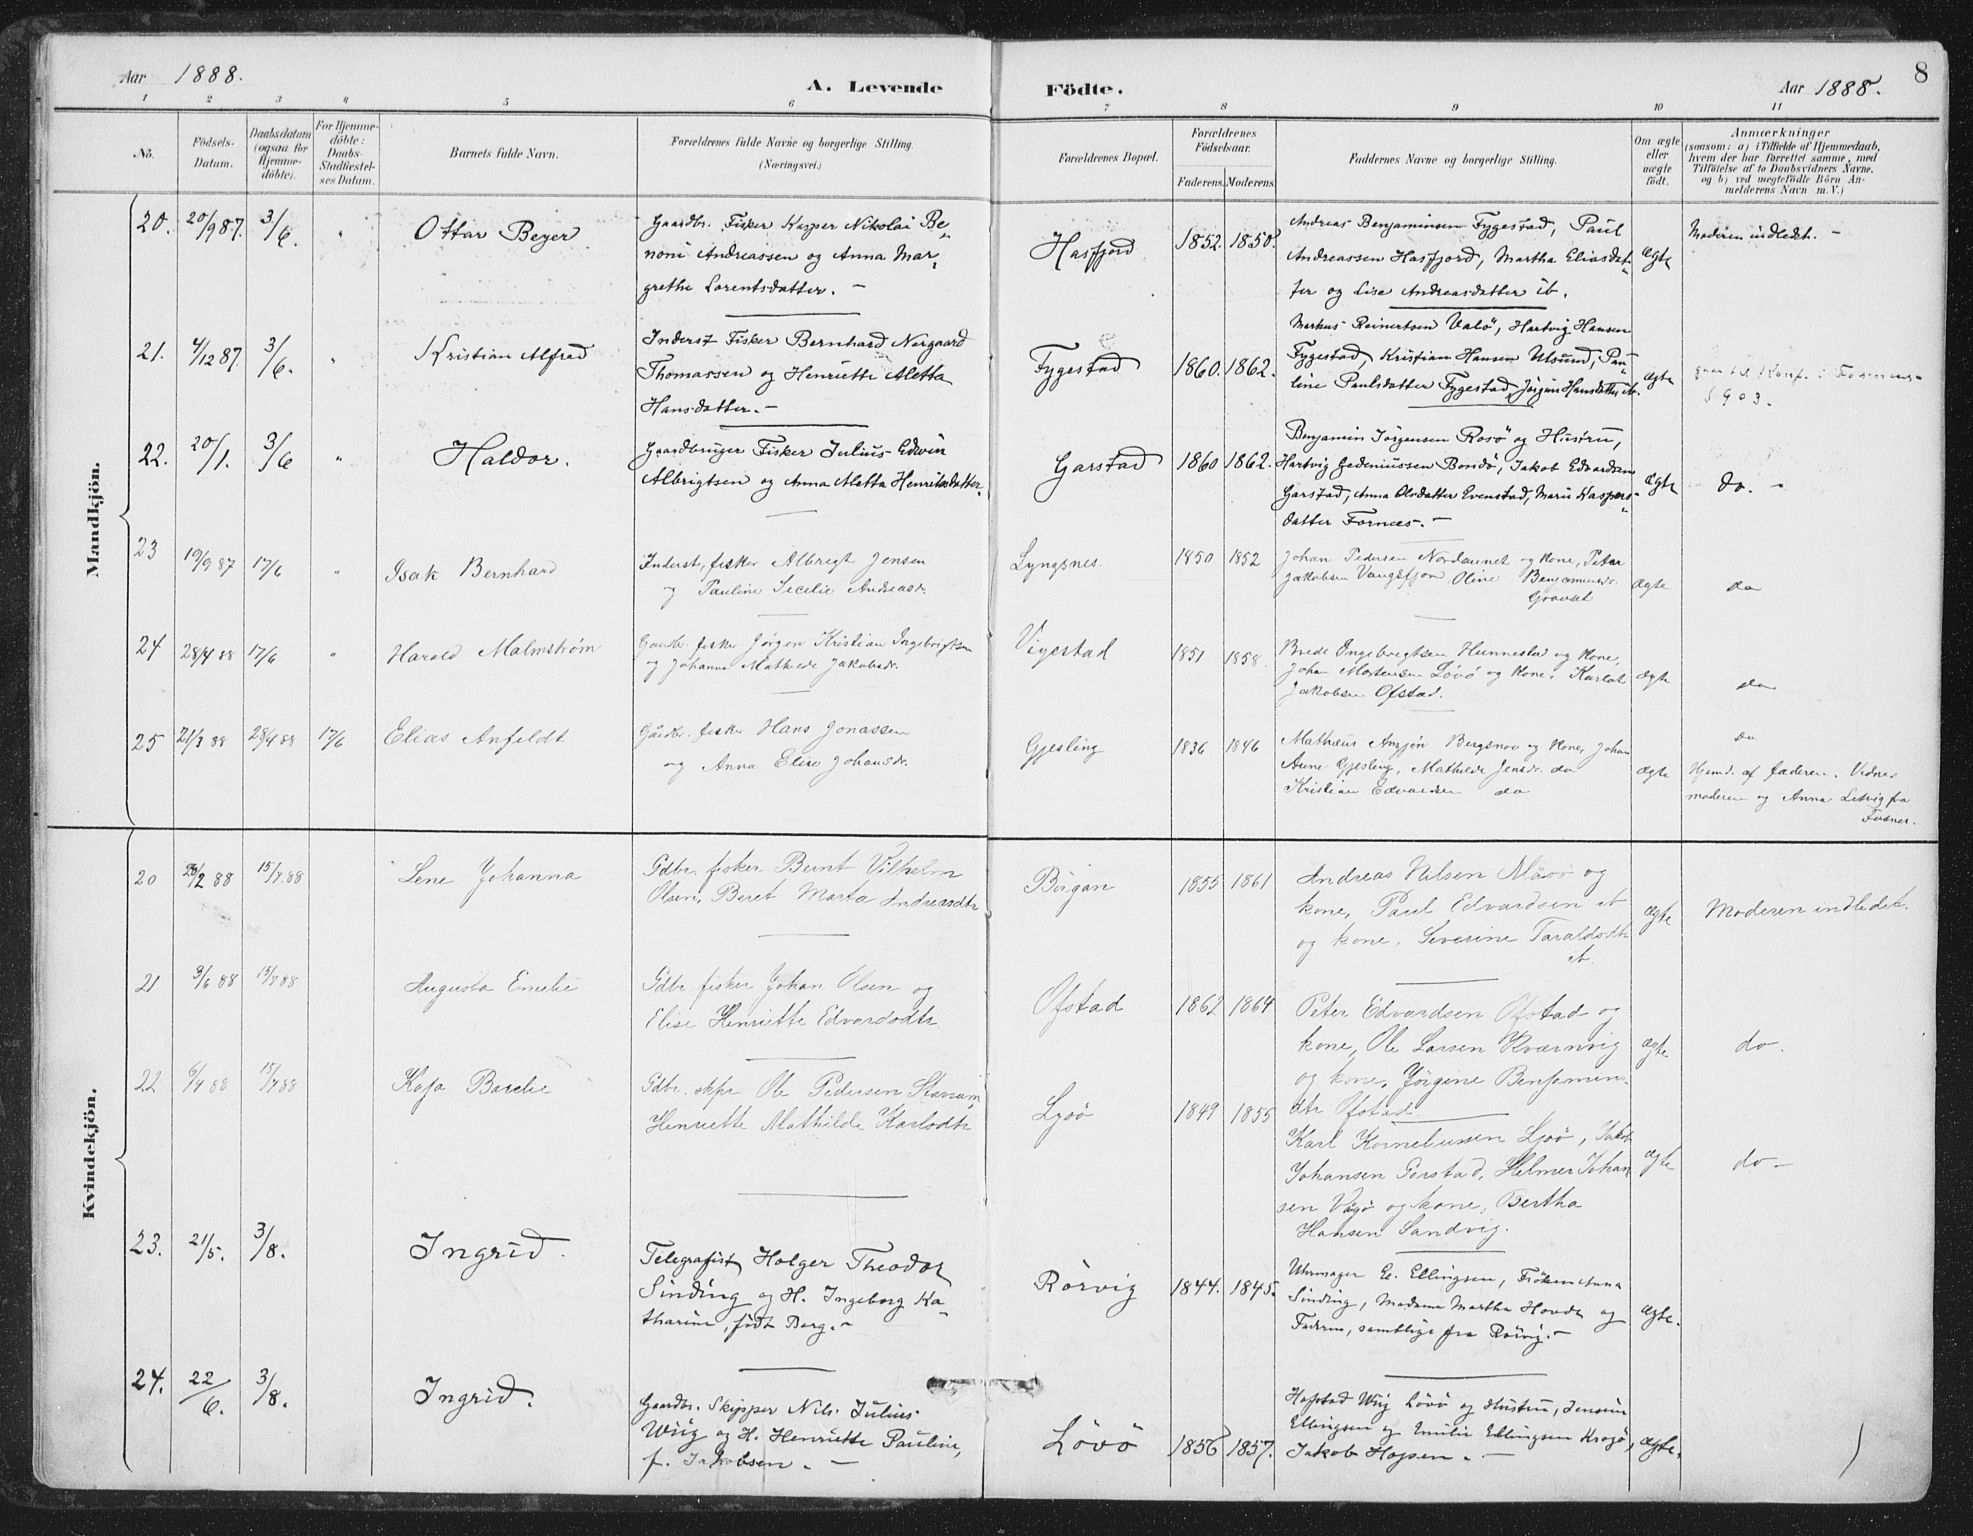 Aar 1888.
A. Levende Födte.
Aar 1888.
8
1 2 3 4 5 6 7 8 9 10 11
No.
Födsels-Datum.
Daabsdatum (ogsaa for Hjemme-döbte).
For Hjemme-döbte: Daabs-Stadfæstel-ses Datum.
Barnets fulde Navn.
Forældrenes fulde Navne og borgerlige Stilling. (Næringsvei.)
Forældrenes Bopæl.
Forældrenes Födselsaar.
Faderens. Moderens.
Faddernes Navne og borgerlige Stilling.
Om ægte eller uægte födt.
Anmærkninger
(saasom: a) i Tilfælde af Hjemmedaab,
hvem der har forrettet samme, med
Tilföielse af to Daabsvidners Navne.
og b) ved uægtefödte Börn An-
melderens Navn m. V.)
Mandkjön.
20. 20/9 87. 3/6. " Ottar Beyer
Gaardbr. Fisker Kasper Nikolai Be-
noni Andreassen og Anna Mar-
grethe Lorentsdatter. –
Hasfjord 1852. 1850.
Andreas Benjaminsen Fygestad, Paul
Andreassen Hasfjord, Martha Eliasdat-
ter og Lise Andreasdatter ib.
Ægte
Moderen indledt. –
21. 4/12 87. 3/6. " Kristian Alfred
Inderst Fisker Bernhard Norgaard
Thomassen og Henriette Aletta
Hansdatter. –
Fygestad 1860. 1862.
Markus Reinertsen Valö, Hartvig Hansen
Fygestad, Kristian Hansen Ulsund, Pau-
line Paulsdatter Fygestad, Jörgine Hansdatter ib.
Ægte
1903.
22. 20/1. 3/6 " Haldor.
Gaardbruger Fisker Julius Edvin
Albrigtsen og Anna Matta Henriksdatter.
Garstad 1860 1862.
Benjamin Jörgensen Rosö og Hustru,
Hartvig Gedeniussen Bondö, Jakob Edvardsen
Garstad, Anna Olsdatter Evenstad, Marie Kaspers-
datter Fornes. –
Ægte
do. –
23 19/9 87 17/6 " Isak Bernhard
Inderst, fisker Albregt Jensen
og Pauline Cecelie Andreasdr.
Lyngsnes. 1850 1852
Johan Pedersen Nordaunet og Kone, Peter
Jakobsen Vangsfjor, Oline Benjaminsdr.
Gravset
Ægte
do
24 28/4 88 17/6 " Harald Malmstrøm
Gaardbr. fisker Jørgen Kristian Ingebrigtsen
og Johanna Mathilde Jakobsdr.
Vigestad 1851 1858.
Brede Ingebregtsen Hunnestad og Kone,
Johan Mortensen Løvø og Kone, Karlot
Jakobsen Ofstad.
Ægte
do
25 21/3 88 28/4 88 17/6 Elias Anfeldt
Gårdbr. fisker Hans Jonassen
og Anna Elise Johansdr.
Gjesling 1836 1846
Mathæus Anzjøn Bergsnov og Kone, Johan
Aune Gjesling, Mathilde Jensdr. do
Kristian Edvardsen do
Ægte
do
Hjemd. af faderen. Vidner
moderen og Anna Letvig fra
Fosnes.
Kvindekjön.
20 /2 88 15/7 88 Lene Johanna
Gdbr. fisker Bernt Vilhelm
Olsen, Beret Marta Andreasdtr
Börgan 1855 1861
Andreas Nilsen Navø og
kone, Paul Edvardsen ib
og kone, Severine Taraldsdtr
ib.
Ægte
Moderen indledet.
21 3/6 88 15/7 88 Augusta Emelie
Gdbr. fisker Johan Olsen og
Elise Henriette Edvardsdtr.
Ofstad 1862 1864
Peter Edvardsen Ofstad og
kone, Ole Larsen Kværnvig
og kone, Jörgine Benjamin-
dtr Ofstad.
Ægte
do.
22 6/4 88 15/7 88 Kaja Bardie
Gdbr. skpr Ole Pedersen Stavrum,
Henriette Mathilde Karlsdtr
Lysö 1849 1855
Karl Korneliussen Lysö, Jakob
Johansen Garstad, Helmer Johan
sen Vågö og kone, Bertha
Hansen Sandvig.
Ægte
do –
23. 21/5. 3/8. Ingrid.
Telegrafist Holger Theodor
Sinding og H. Ingeborg Ka-
tharine, födt Borg. –
Rörvig 1844. 1845.
Uhrmager E. Ellingsen, Fröken Anna
Sinding, Madame Martha Hovde og
Faderen, samtlige fra Rörvig. –
Ægte.
24. 22/6. 3/8. Ingrid.
Gaardbr. Skipper Nils Julius
Wiig og H. Henriette Pauline,
f. Jakobsen. –
Lövö 1856 1857.
Hofstad Wiig Lövö og Hustru, Jensine
Ellingsen og Emilie Ellingsen Kragö,
Jakob Hojsen. –
Ægte.